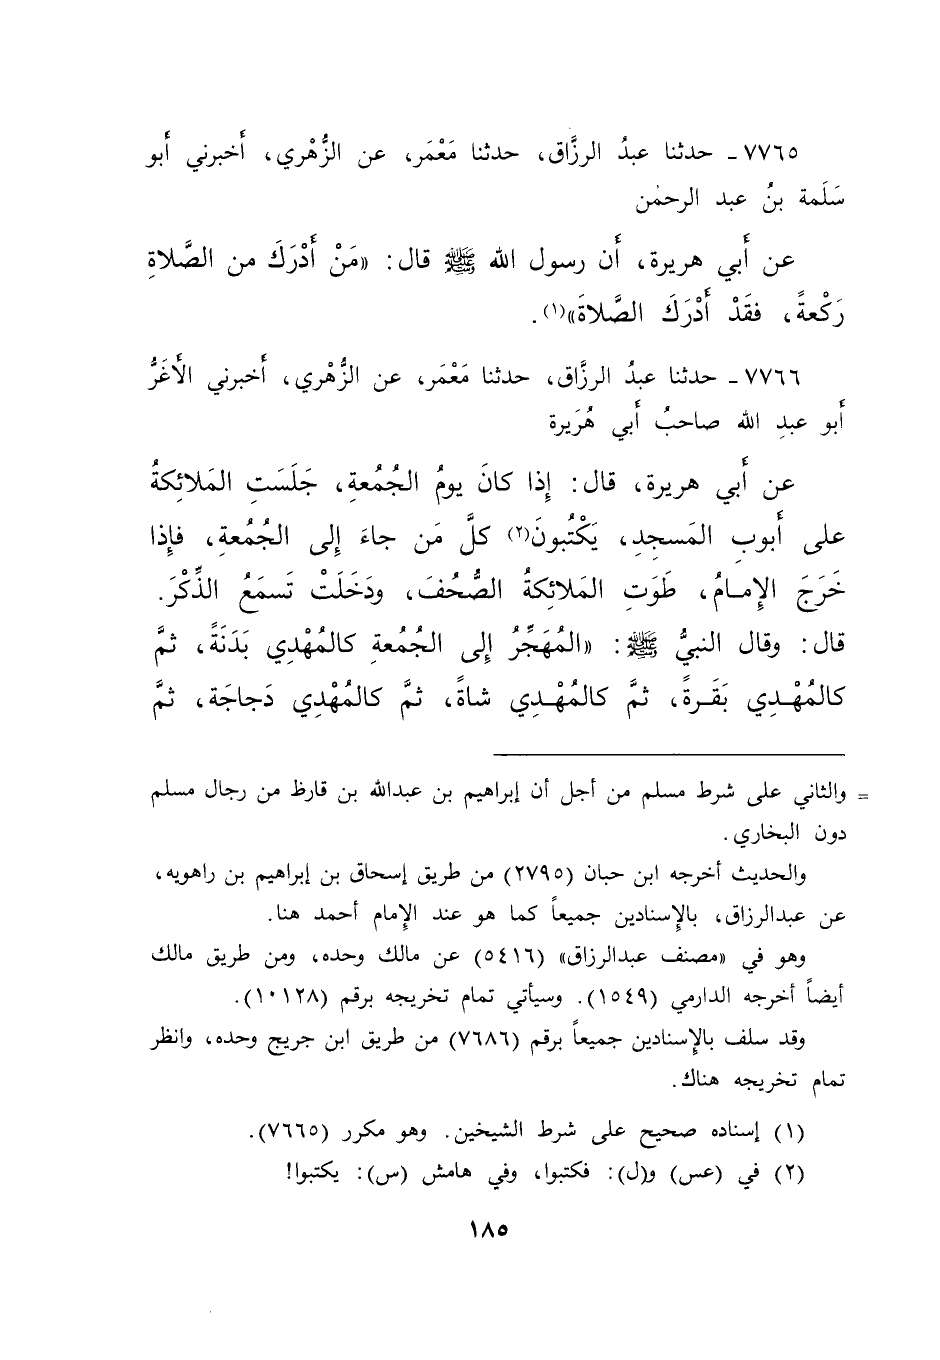 ٧٧٦٥ - حدثنا عبدُ الرزَّاق، حدثنا مَعْمَر، عن الزُّهْري، أَخبرني أَبو
سَلَمة بنُ عبد الرحمٰن
عن أَبي هريرة، أَن رسول الله ﷺ قال: «مَنْ أَدْرَكَ من الصَّلاةِ
رَكْعةً، فقَدْ أَدْرَكَ الصَّلاةَ»(١).
٧٧٦٦ - حدثنا عبدُ الرزَّاق، حدثنا مَعْمَر، عن الزُّهْري، أَخبرني الأَغَرُّ
أَبو عبدِ الله صاحبُ أَبي هُرَيرة
عن أَبي هريرة، قال: إِذا كانَ يومُ الجُمُعة، جَلَسَتِ المَلائكةُ
على أَبوبِ المَسجِدِ، يَكْتُبونَ(٢) كلَّ مَن جاءَ إِلى الجُمُعةِ، فإِذا
خَرَجَ الإِمامُ، طَوَتِ المَلائكةُ الصُّحُفَ، ودَخَلَتْ تَسمَعُ الذِّكْرَ.
قال: وقال النبيُّ ﷺ: «المُهَجِّرُ إِلى الجُمُعةِ كالمُهْدِي بَدَنَةً، ثمَّ
كالمُهْدِي بَقَرةً، ثمَّ كالمُهْدِي شاةً، ثمَّ كالمُهْدِي دَجاجَة، ثمَّ
= والثاني على شرط مسلم من أجل أن إبراهيم بن عبدالله بن قارظ من رجال مسلم
دون البخاري.
والحديث أخرجه ابن حبان (٢٧٩٥) من طريق إسحاق بن إبراهيم بن راهويه،
عن عبدالرزاق، بالإسنادين جميعاً كما هو عند الإمام أحمد هنا.
وهو في «مصنف عبدالرزاق» (٥٤١٦) عن مالك وحده، ومن طريق مالك
أيضاً أخرجه الدارمي (١٥٤٩). وسيأتي تمام تخريجه برقم (١٠١٢٨).
وقد سلف بالإسنادين جميعاً برقم (٧٦٨٦) من طريق ابن جريج وحده، وانظر
تمام تخريجه هناك.
(١) إسناده صحيح على شرط الشيخين. وهو مكرر (٧٦٦٥).
(٢) في (عس) و(ل): فكتبوا، وفي هامش (س): يكتبوا!
١٨٥